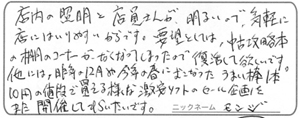 店内の照明と店員さんが、明るいので、気軽に
店にはいりやすいからです。要望としては、中古攻略本
の棚のコーナーがなくなってしまったので復活して欲しいです。
他には、昨年の12月や今年の春におこなったうまい棒1本
10円の値段で買える様な激安ソフトのセール企画を
また開催してもらいたいです。
ニックネーム モンジ